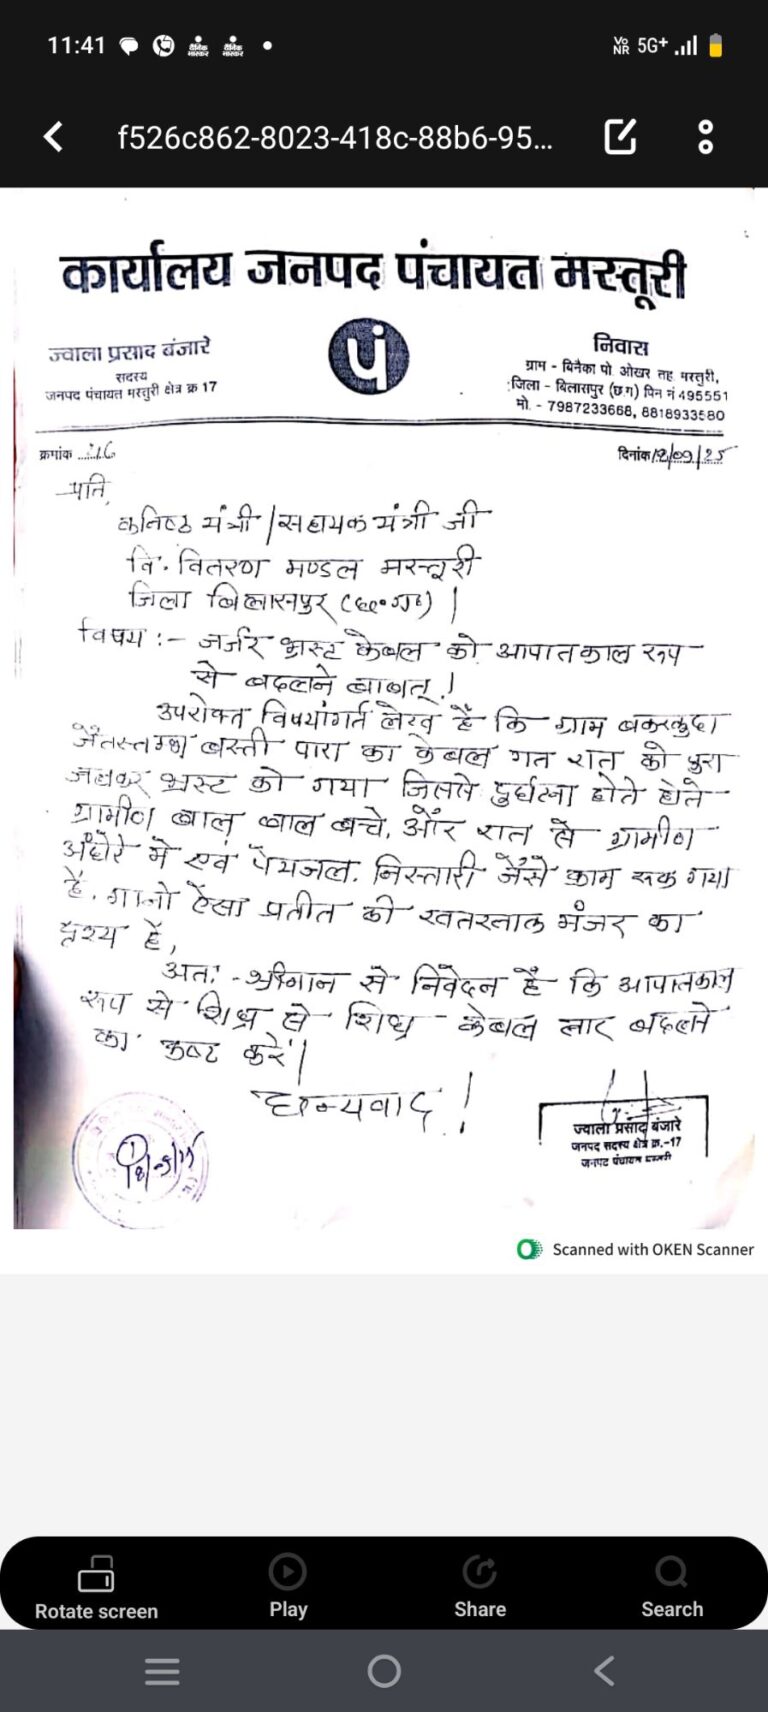 11:41
VoNR 5G+
f526c862-8023-418c-88b6-95...
कार्यालय जनपद पंचायत मस्तूरी
ज्वाला प्रसाद बंजारे
सदस्य
जनपद पंचायत मस्तुरी क्षेत्र क्र 17
पं
निवास
ग्राम - बिनैका पो. ओखर तह. मस्तुरी,
जिला - बिलासपुर (छ.ग) पिन नं 495551
मो. - 7987233668, 8818933580
क्रमांक 16
दिनांक 12/09/25
प्रति,
कनिष्ठ यंत्री/सहायक यंत्री जी
वि. वितरण मण्डल मस्तूरी
जिला बिलासपुर (छ०ग०)|
विषय :- जर्जर भ्रस्ट केबल को आपातकाल रूप
से बदलने बाबत्!
उपरोक्त विषयांगर्त लेख है कि ग्राम बकरकुदा
जैतस्तम्भ बस्ती पारा का केबल गत रात को पुरा
जलकर भ्रस्ट को गया जिससे दुर्घटना होते होते
ग्रामीण बाल बाल बचे, और रात से ग्रामीण
अंधेरे में एवं पेयजल. निस्तारी जैसे काम रूक गया
है. मानो ऐसा प्रतीत की खतरनाक मंजर का
दृश्य है,
अत: - श्रीमान से निवेदन है कि आपातकाल
रूप से शिघ्र से शिघ्र - केबल तार बदलने
का कष्ट करें|
धन्यवाद!
ज्वाला प्रसाद बंजारे
जनपद सदस्य क्षेत्र क्र.-17
जनपद पंचायत मस्तुरी
Scanned with OKEN Scanner
Rotate screen
Play
Share
Search